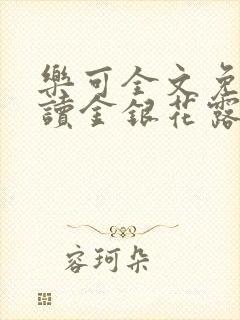 樂可全文免
讀金銀花露
容珂朵